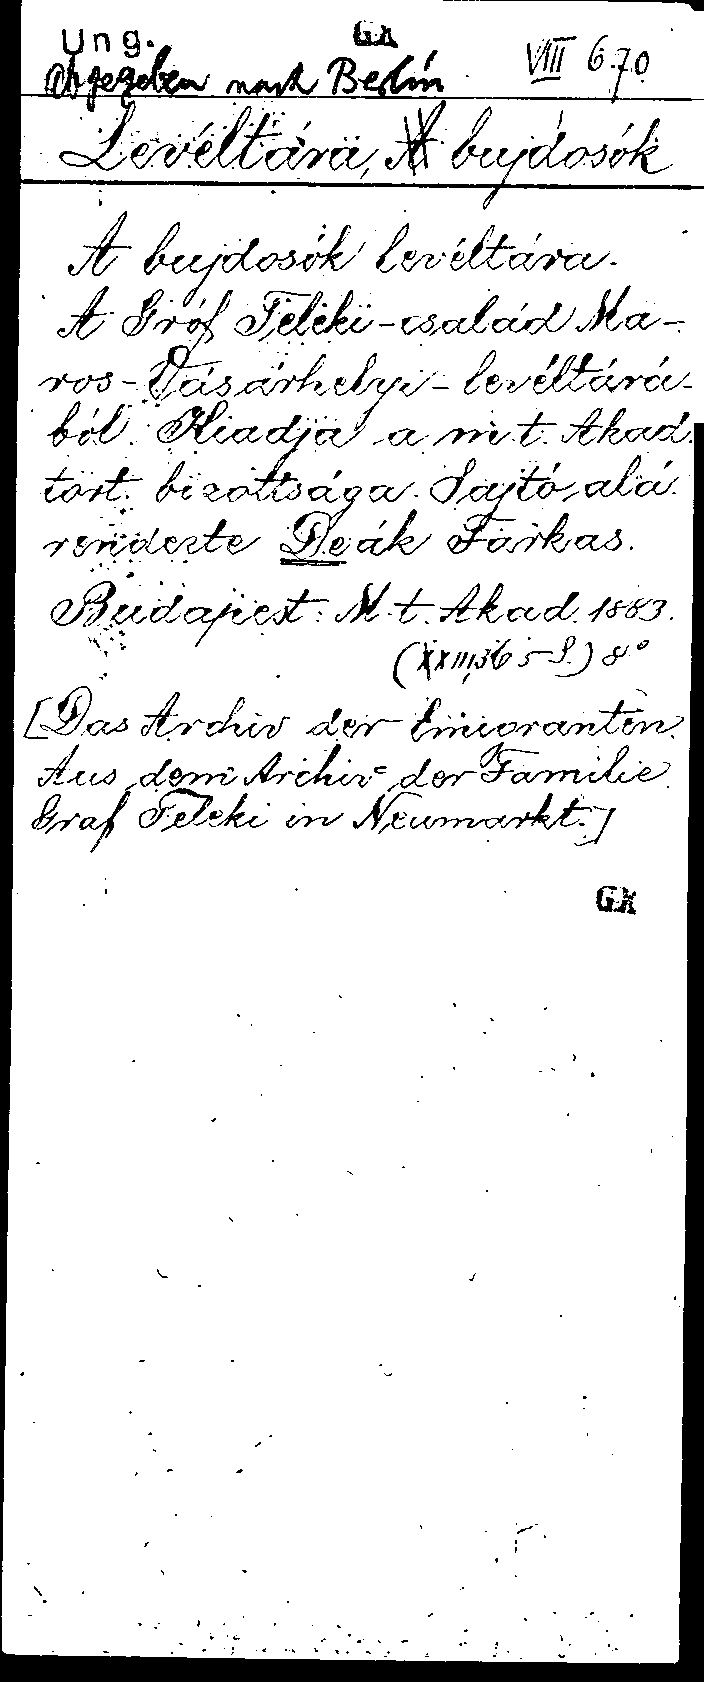 Ung. GK VIII 670
abgegeben nach Berlin
Levéltára, A bujdosók
A bujdosók levéltára.
A Gróf Teleki-család Ma-
ros-Vásárhelyi-levéltárá-
ból. Kiadja a m t. Akad.
tört. bizottsága. Sajtó alá
rendezte Deák Farkas.
Budapest: M. t. Akad. 1883.
(XXIII, 365 S.) 8°
[Das Archiv der Emigranten.
Aus dem Archiv der Familie
Graf Teleki in Neumarkt.]
GK